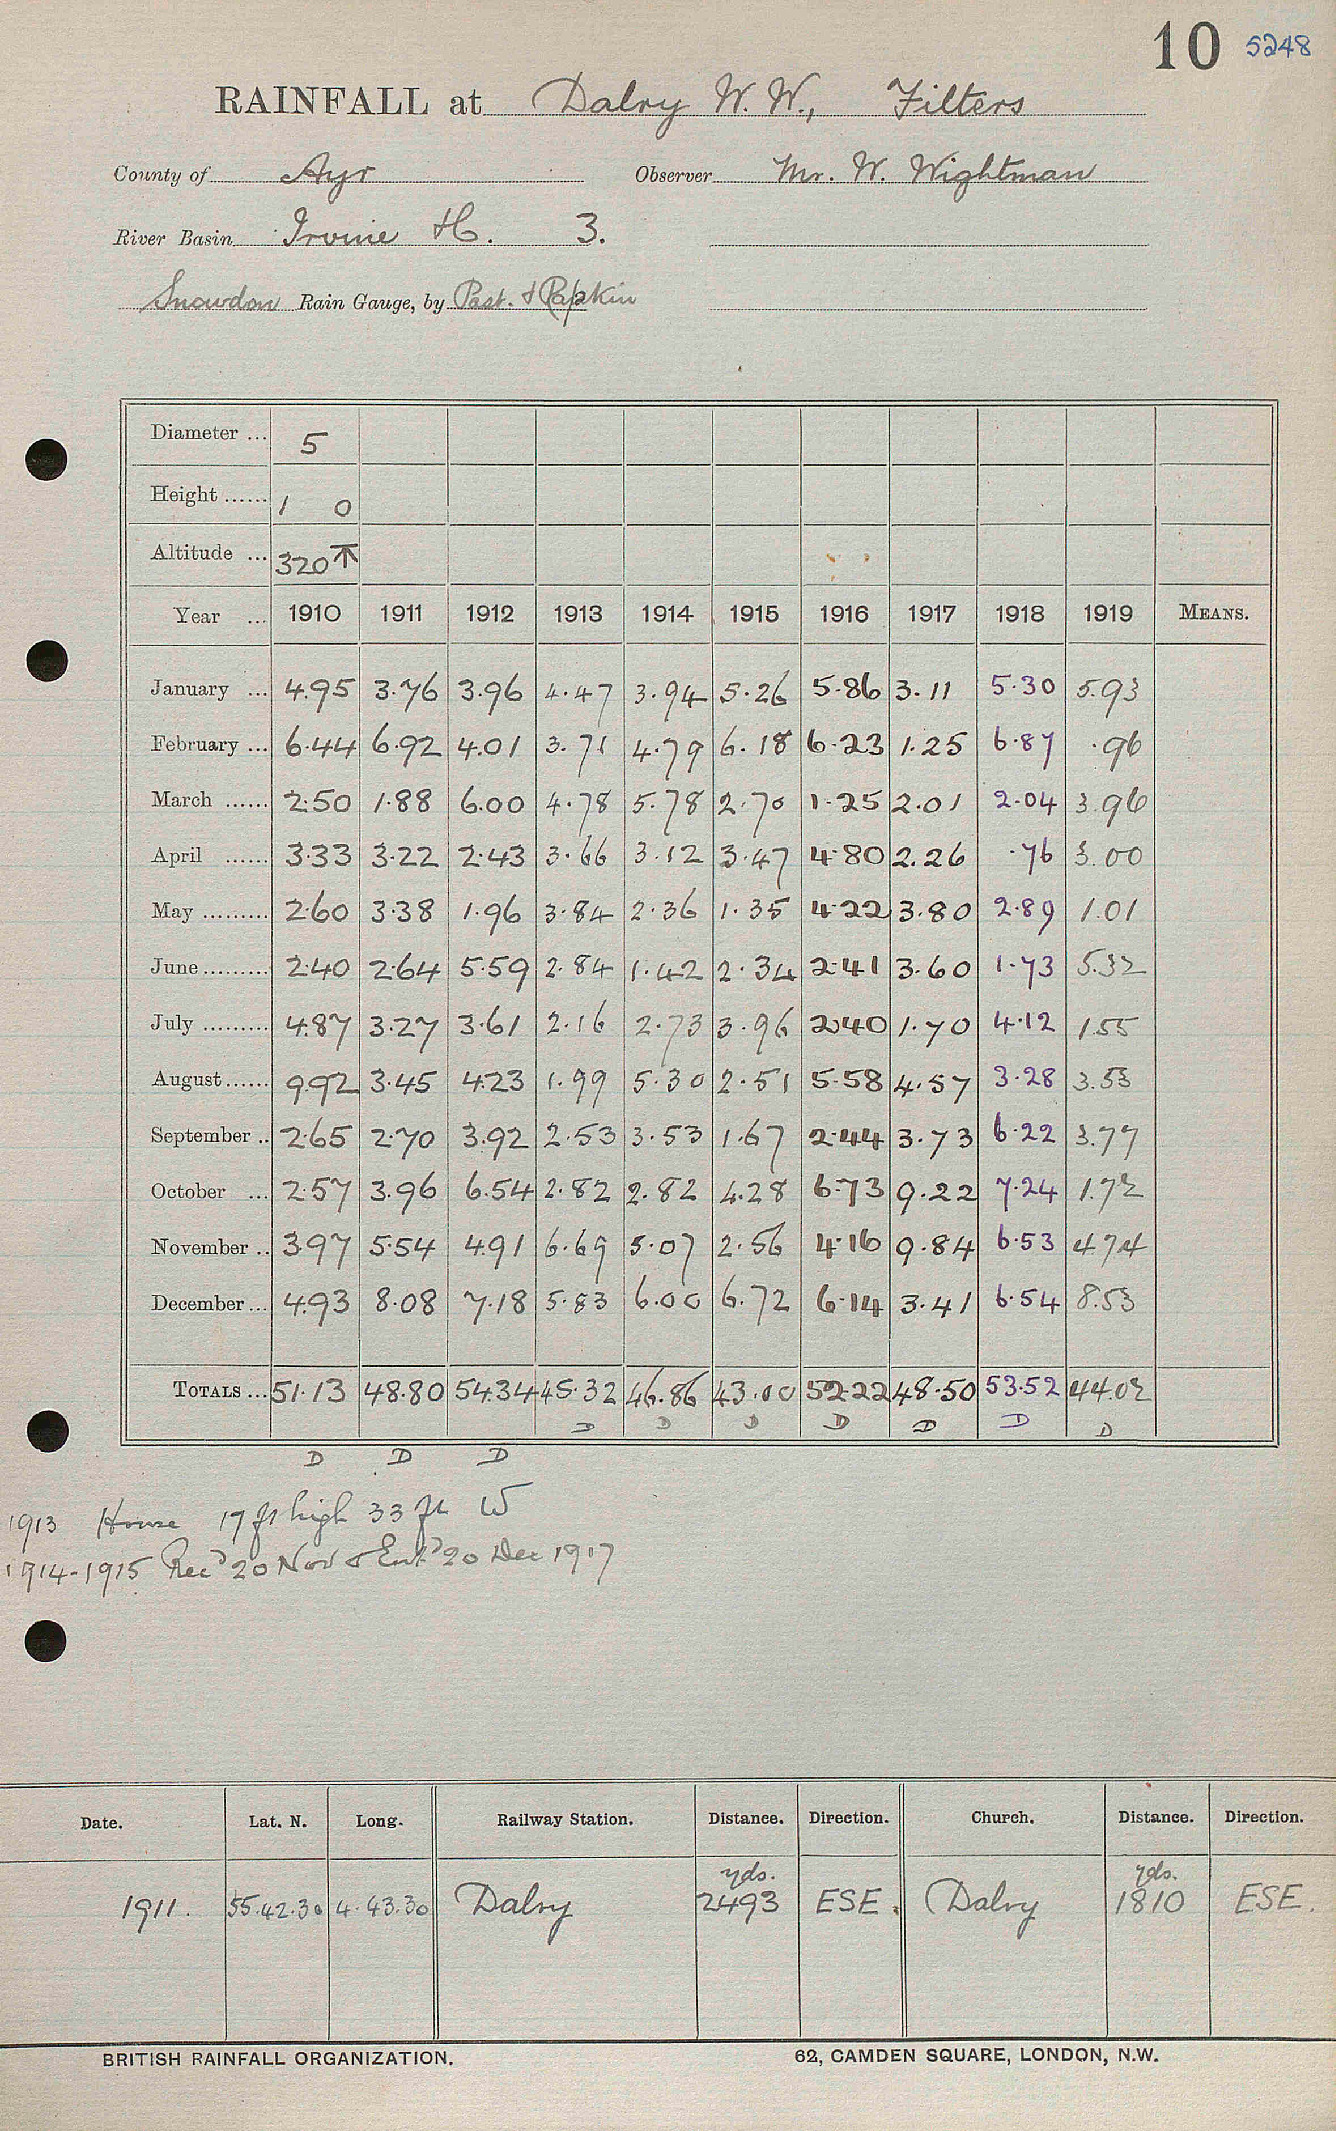 10 5248
RAINFALL at Dalry W. W., Filters
County of Ayr Observer Mr. W. Wightman
River Basin Irvine H. 3.
Snowdon Rain Gauge, by Past. & Papkin
Diameter ... 5
Height ...... 1 0
Altitude ... 320 ⊼
Year ... 1910 1911 1912 1913 1914 1915 1916 1917 1918 1919 MEANS.
January ... 4.95 3.76 3.96 4.47 3.94 5.26 5.86 3.11 5.30 5.93
February ... 6.44 6.92 4.01 3.71 4.79 6.18 6.23 1.25 6.87 .96
March ...... 2.50 1.88 6.00 4.78 5.78 2.70 1.25 2.01 2.04 3.96
April ...... 3.33 3.22 2.43 3.66 3.12 3.47 4.80 2.26 .76 3.00
May ......... 2.60 3.38 1.96 3.84 2.36 1.35 4.22 3.80 2.89 1.01
June ......... 2.40 2.64 5.59 2.84 1.42 2.34 2.41 3.60 1.73 5.32
July ......... 4.87 3.27 3.61 2.16 2.73 3.96 2.40 1.70 4.12 1.55
August ...... 9.92 3.45 4.23 1.99 5.30 2.51 5.58 4.57 3.28 3.53
September .. 2.65 2.70 3.92 2.53 3.53 1.67 2.44 3.73 6.22 3.77
October ... 2.57 3.96 6.54 2.82 2.82 4.28 6.73 9.22 7.24 1.72
November .. 3.97 5.54 4.91 6.69 5.07 2.56 4.16 9.84 6.53 4.74
December ... 4.93 8.08 7.18 5.83 6.00 6.72 6.14 3.41 6.54 8.53
TOTALS ... 51.13 48.80 54.34 45.32 46.86 43.00 52.22 48.50 53.52 44.02
D D D D D D D
D D D
1913 House 17 ft high 33 ft W
1914-1915 Recd 20 Nov & Entd 20 Dec 1917
Date. Lat. N. Long. Railway Station. Distance. Direction. Church. Distance. Direction.
yds. yds.
1911. 55.42.30 4.43.30 Dalry 2493 ESE. Dalry 1810 ESE.
BRITISH RAINFALL ORGANIZATION. 62, CAMDEN SQUARE, LONDON, N.W.